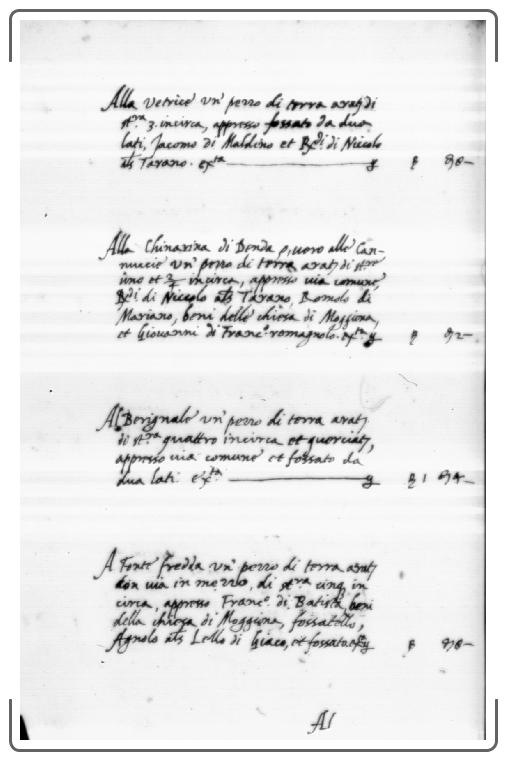 Alla Vetrice un' pezzo di terra arat: di
st.ra 3. incirca, appresso fossato da duo
lati, Jacomo di Maldino et di Niccolo
als Tarano.
Alla Chinarina di Benda overo alle Can-
nuccie un' pezzo di terra arat: di st.ra
uno et incirca, appresso via comune,
di Niccolo als Tarano, Romolo di
Mariano, beni delle chiesa di Moggiona,
et Giovanni di Franc.o romagnolo.
Al Berignale un' pezzo di terra arat:
di st.ra quattro incirca et querciat:,
appresso via comune et fossato da
dua lati.
A Fonte fredda un' pezzo di terra arat:
con via in mezzo, di st.ra cinq. in
circa, appresso Franc.o di Batista, beni
della chiesa di Moggiona, fossatello,
Agnolo als Lello di Giaco, et fossato.
Al